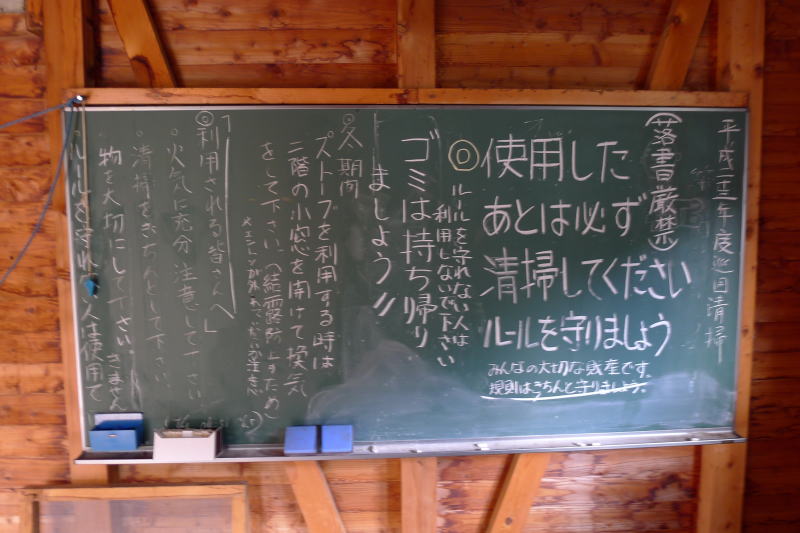 平成二十三年度巡回清掃
(落書厳禁)
◎使用した
あとは必ず
清掃してください
ルールを守りましょう
みんなの大切な財産です。
規則はきちんと守りましょう。
ルールを守れない人は
利用しないで下さい
ゴミは持ち帰り
ましょう!!
◎冬期間
ストーブを利用する時は
二階の小窓を開けて換気
をして下さい。(結露防止のため)
「◎利用される皆さんへ」
。火気に充分注意して下さい
。清掃をきちんとして下さい。
。物を大切にして下さい。
。ルールを守れない人は使用で
きません